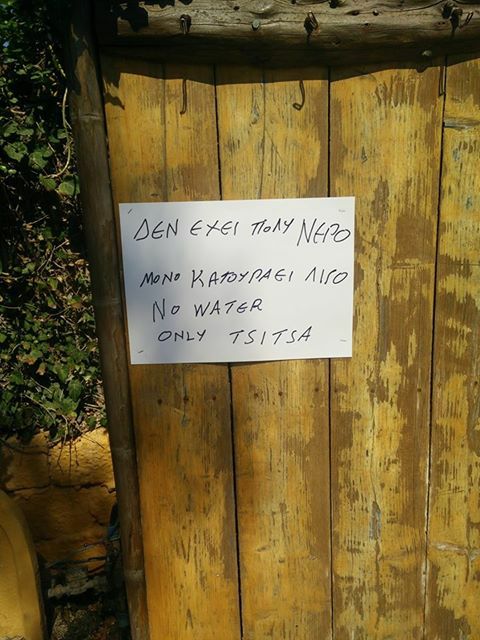 ΔΕΝ ΕΧΕΙ ΠΟΛΥ ΝΕΡΟ
ΜΟΝΟ ΚΑΤΟΥΡΑΕΙ ΛΙΓΟ
NO WATER
ONLY TSITSA